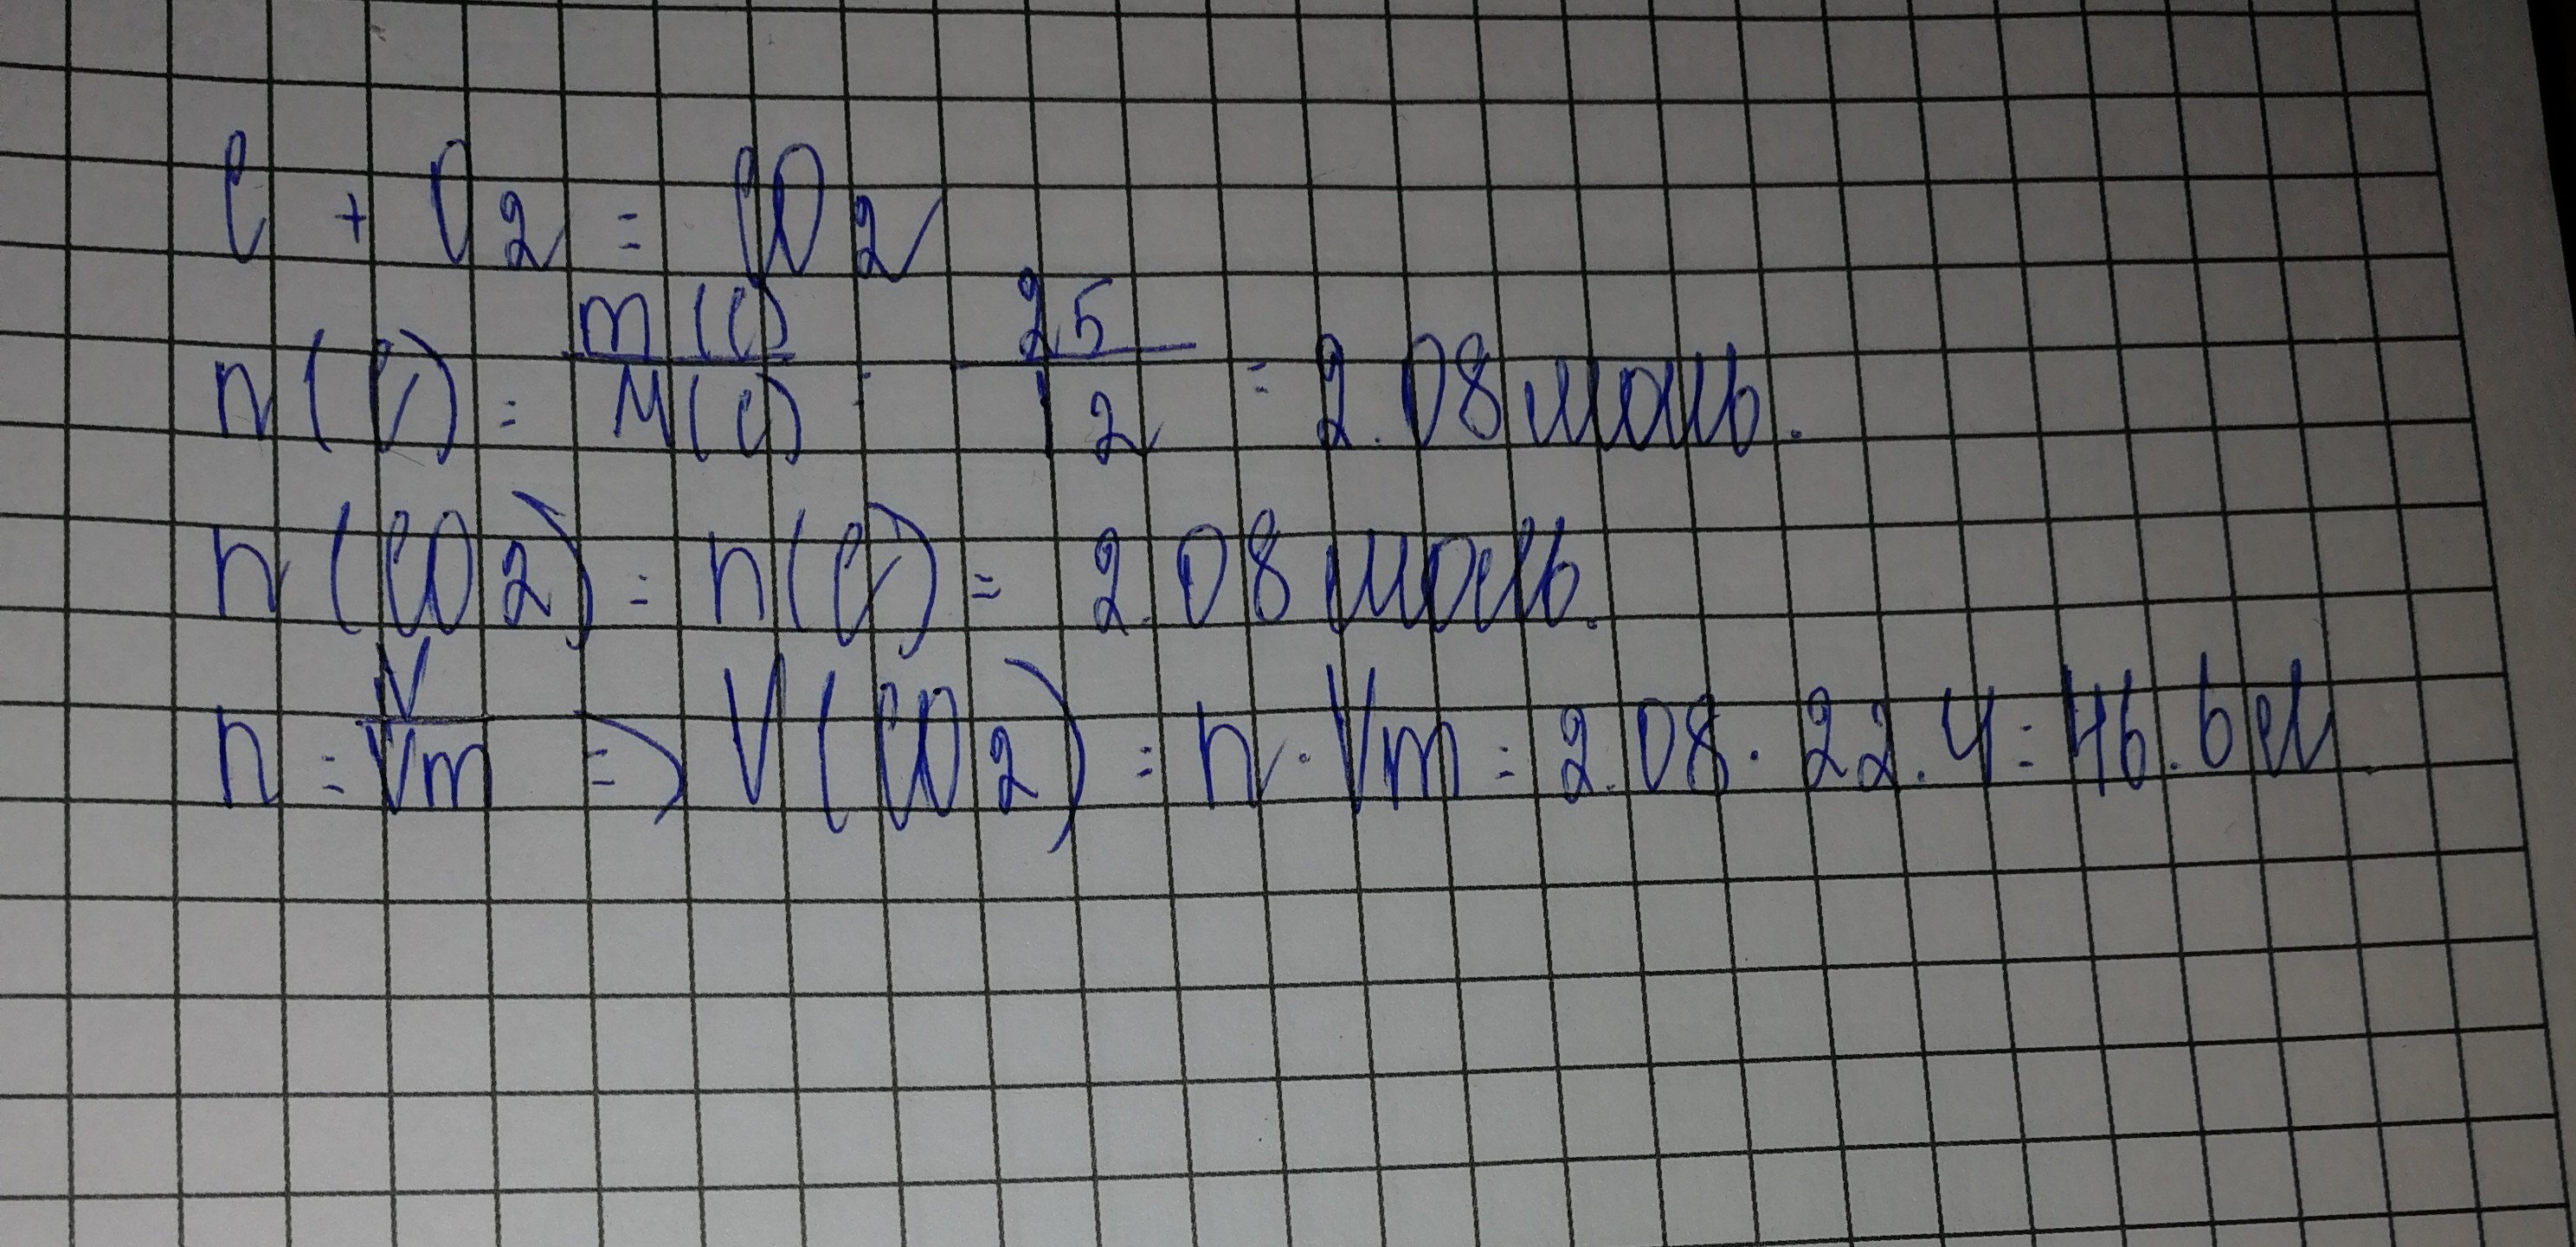 C + O2 = CO2
n(C) = m(C)/M(C) = 25/12 = 2.08 моль.
n(CO2) = n(C) = 2.08 моль.
n = V/Vm => V(CO2) = n · Vm = 2.08 · 22.4 = 46.6 л.